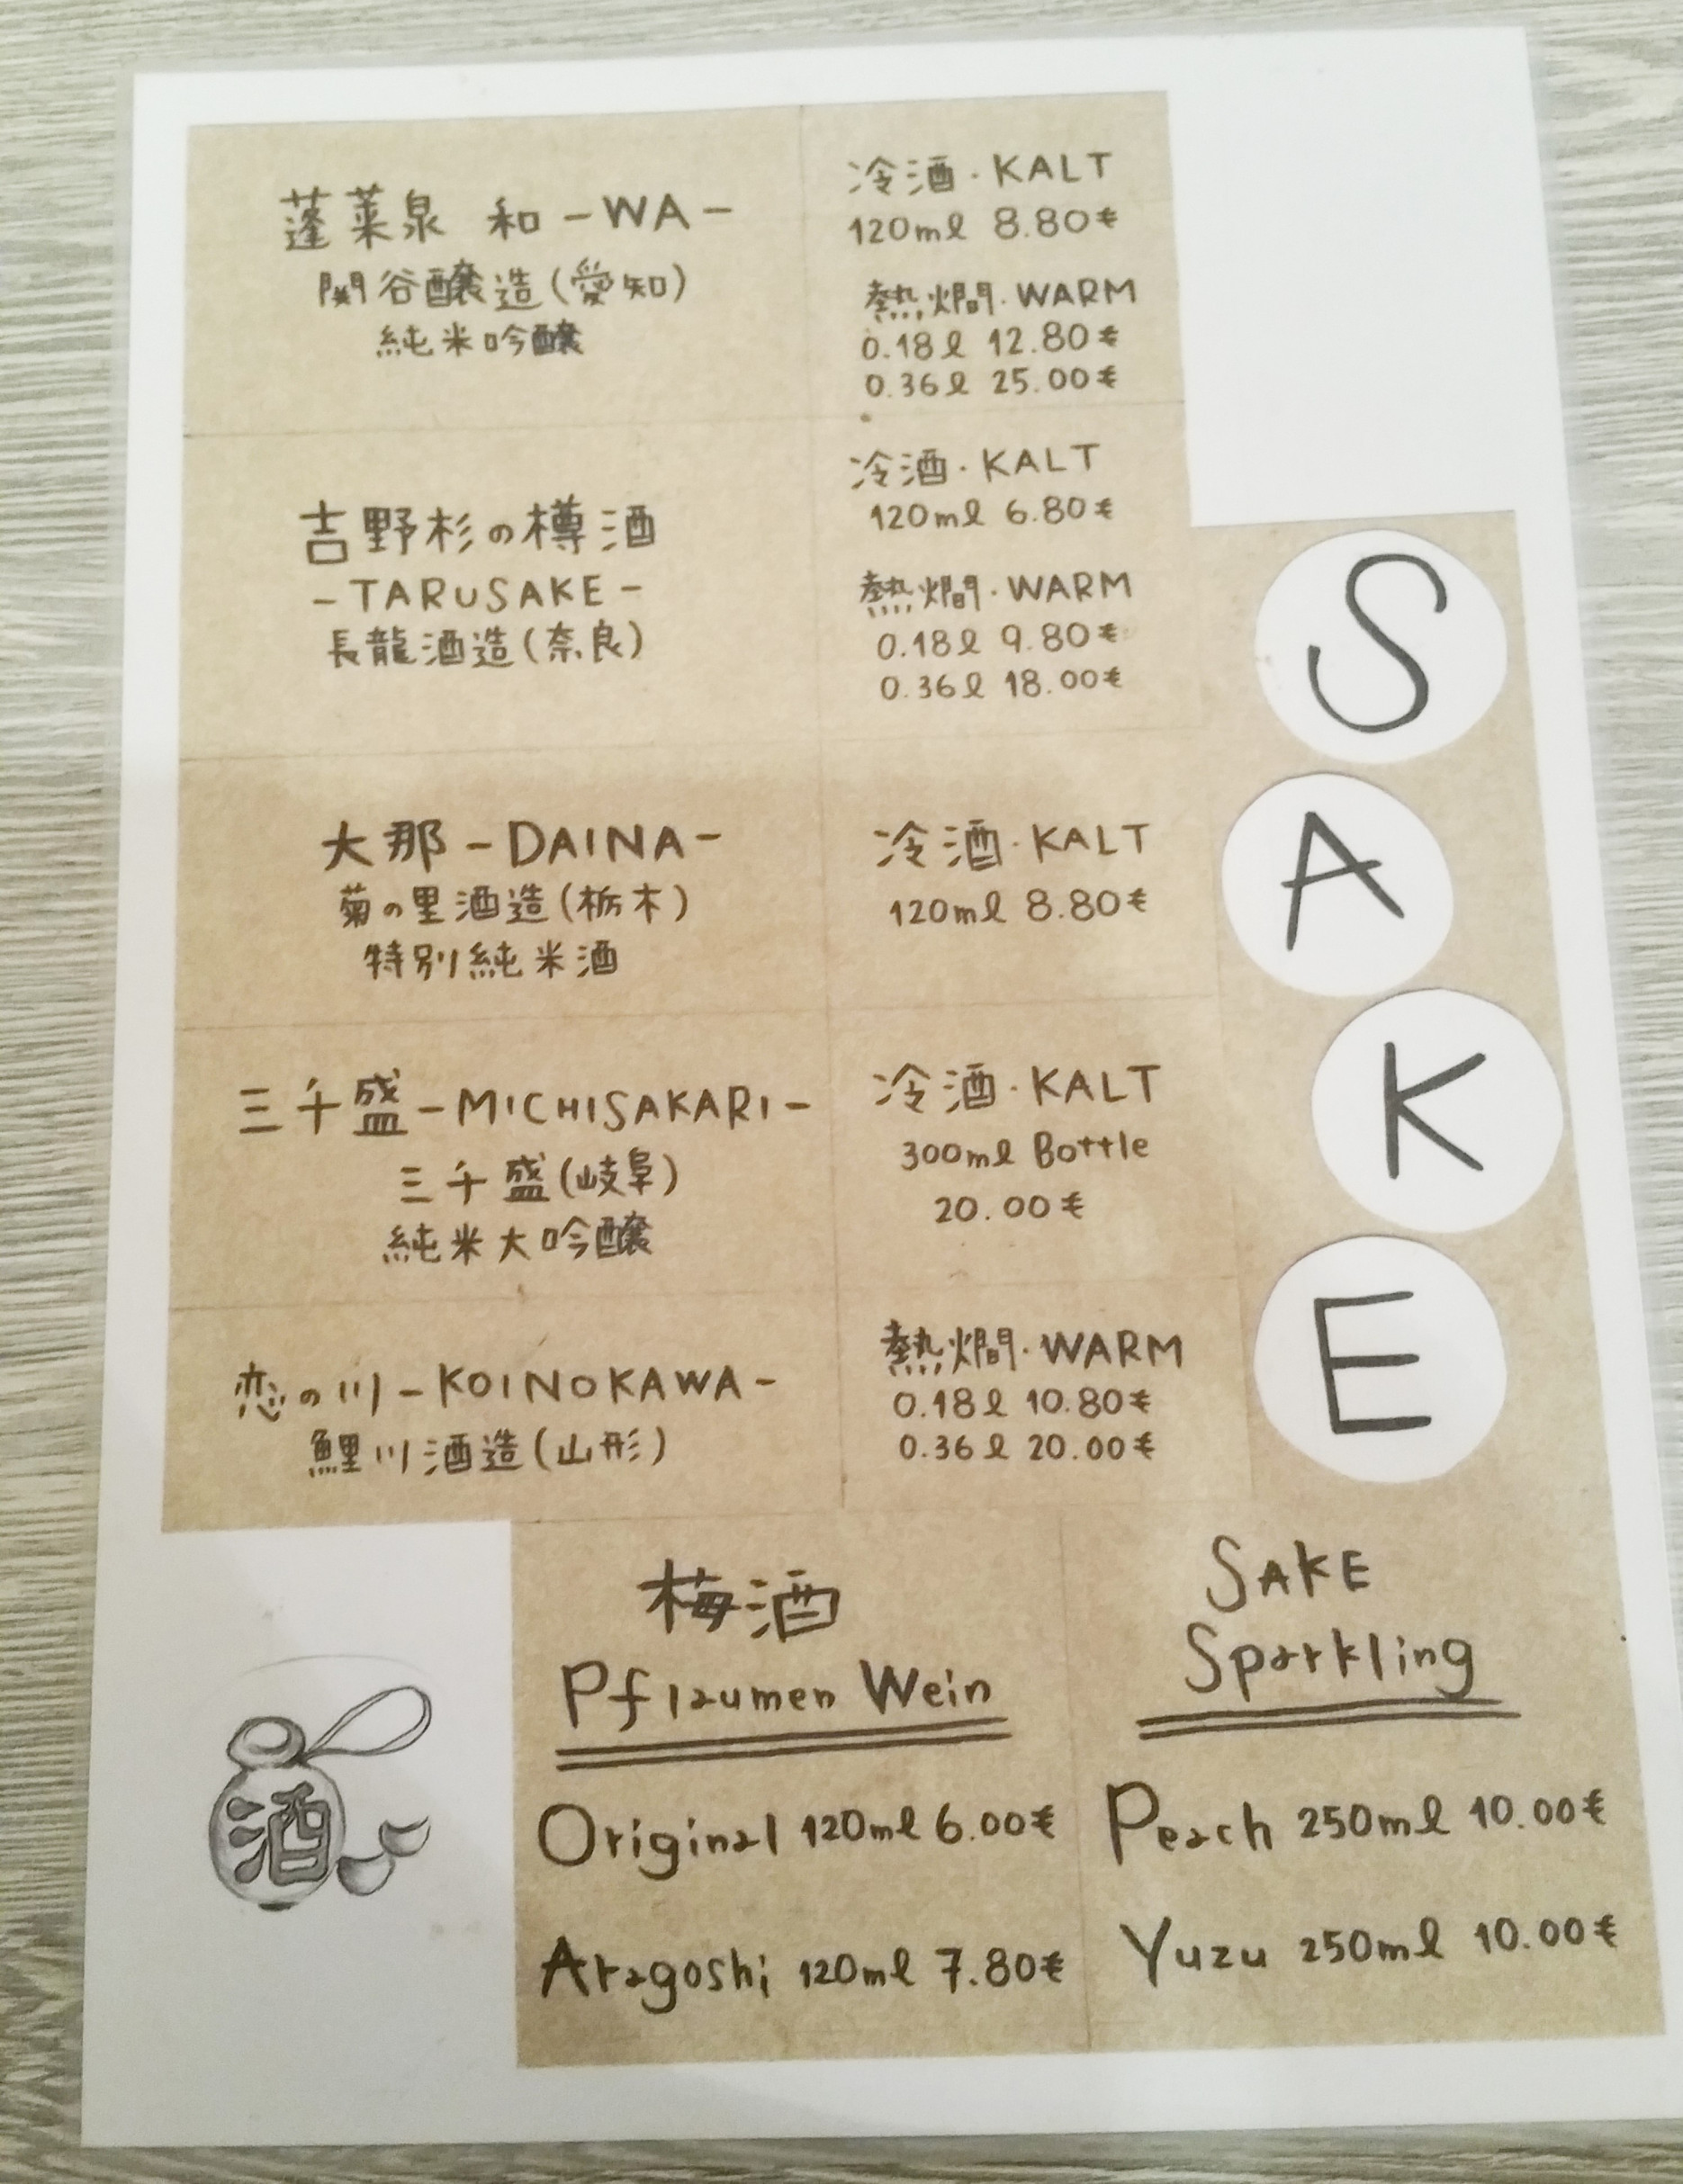 蓬莱泉 和 -WA-
関谷醸造(愛知)
純米吟醸
冷酒・KALT
120ml 8.80€
熱燗・WARM
0.18l 12.80€
0.36l 25.00€
吉野杉の樽酒
-TARUSAKE-
長龍酒造(奈良)
冷酒・KALT
120ml 6.80€
熱燗・WARM
0.18l 9.80€
0.36l 18.00€
大那-DAINA-
菊の里酒造(栃木)
特別純米酒
冷酒・KALT
120ml 8.80€
三千盛-MICHISAKARI-
三千盛(岐阜)
純米大吟醸
冷酒・KALT
300ml Bottle
20.00€
恋の川-KOINOKAWA-
鯉川酒造(山形)
熱燗・WARM
0.18l 10.80€
0.36l 20.00€
S
A
K
E
梅酒
Pflaumen Wein
Original 120ml 6.00€
Aragoshi 120ml 7.80€
SAKE
Sparkling
Peach 250ml 10.00€
Yuzu 250ml 10.00€
酒